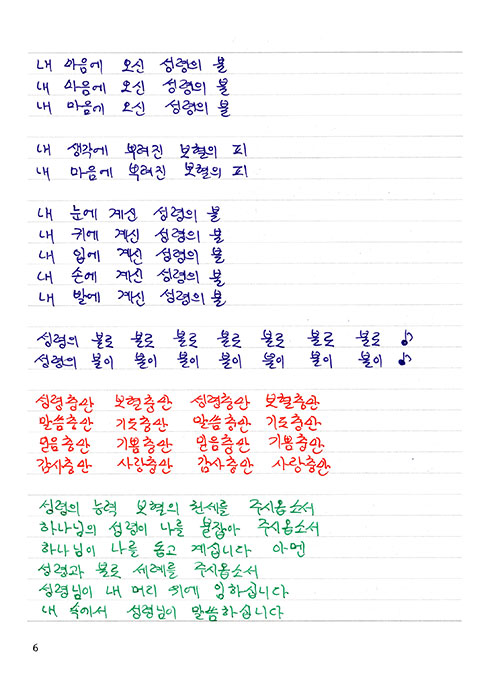 내 마음에 오신 성령의 불
내 마음에 오신 성령의 불
내 마음에 오신 성령의 불
내 생각에 뿌려진 보혈의 피
내 마음에 뿌려진 보혈의 피
내 눈에 계신 성령의 불
내 귀에 계신 성령의 불
내 입에 계신 성령의 불
내 손에 계신 성령의 불
내 발에 계신 성령의 불
성령의 불로 불로 불로 불로 불로 불로 불로 ♪
성령의 불이 불이 불이 불이 불이 불이 불이 ♪
성령충만 보혈충만 성령충만 보혈충만
말씀충만 기도충만 말씀충만 기도충만
믿음충만 기쁨충만 믿음충만 기쁨충만
감사충만 사랑충만 감사충만 사랑충만
성령의 능력 보혈의 권세를 주시옵소서
하나님의 성령이 나를 붙잡아 주시옵소서
하나님이 나를 돕고 계십니다 아멘
성령과 불로 세례를 주시옵소서
성령님이 내 머리 위에 임하십니다
내 속에서 성령님이 말씀하십니다
6